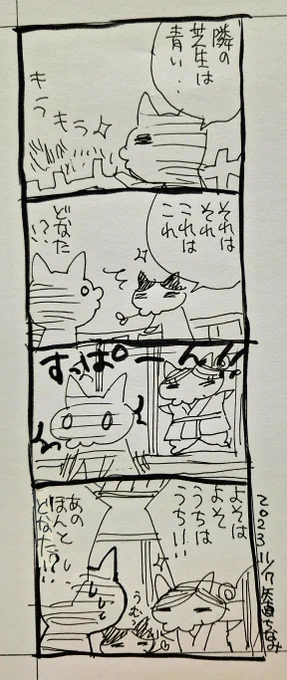 隣の
芝生は
青い・・
キラ
キラ
それは
それ
これは
これ
どなた
!?
すっぱーん!!
よそは
よそ
うちは
うち!!!
うむっ
あの
ほんと
どなた!?
2023 11/7